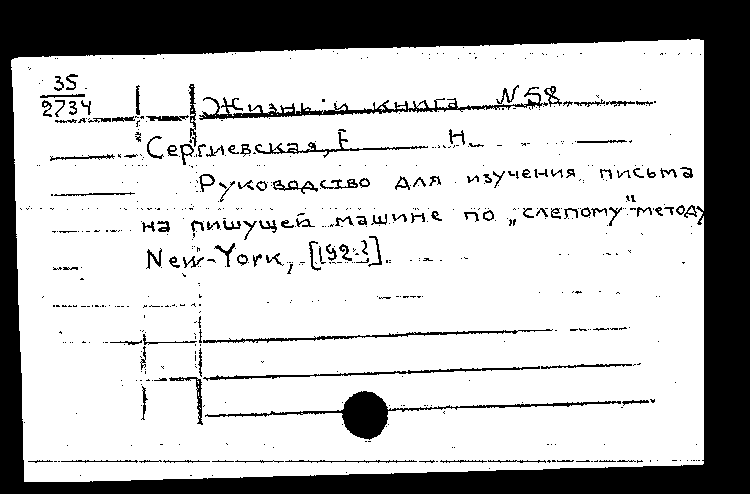 35
2734
Жизнь и книга N 58
Сергиевская, Е Н.
Руководство для изучения письма
на пишущей машине по „слепому" методу
New-York, [192-?].